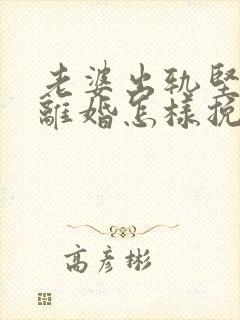 老婆出軌堅
離婚怎樣挽
高彥彬